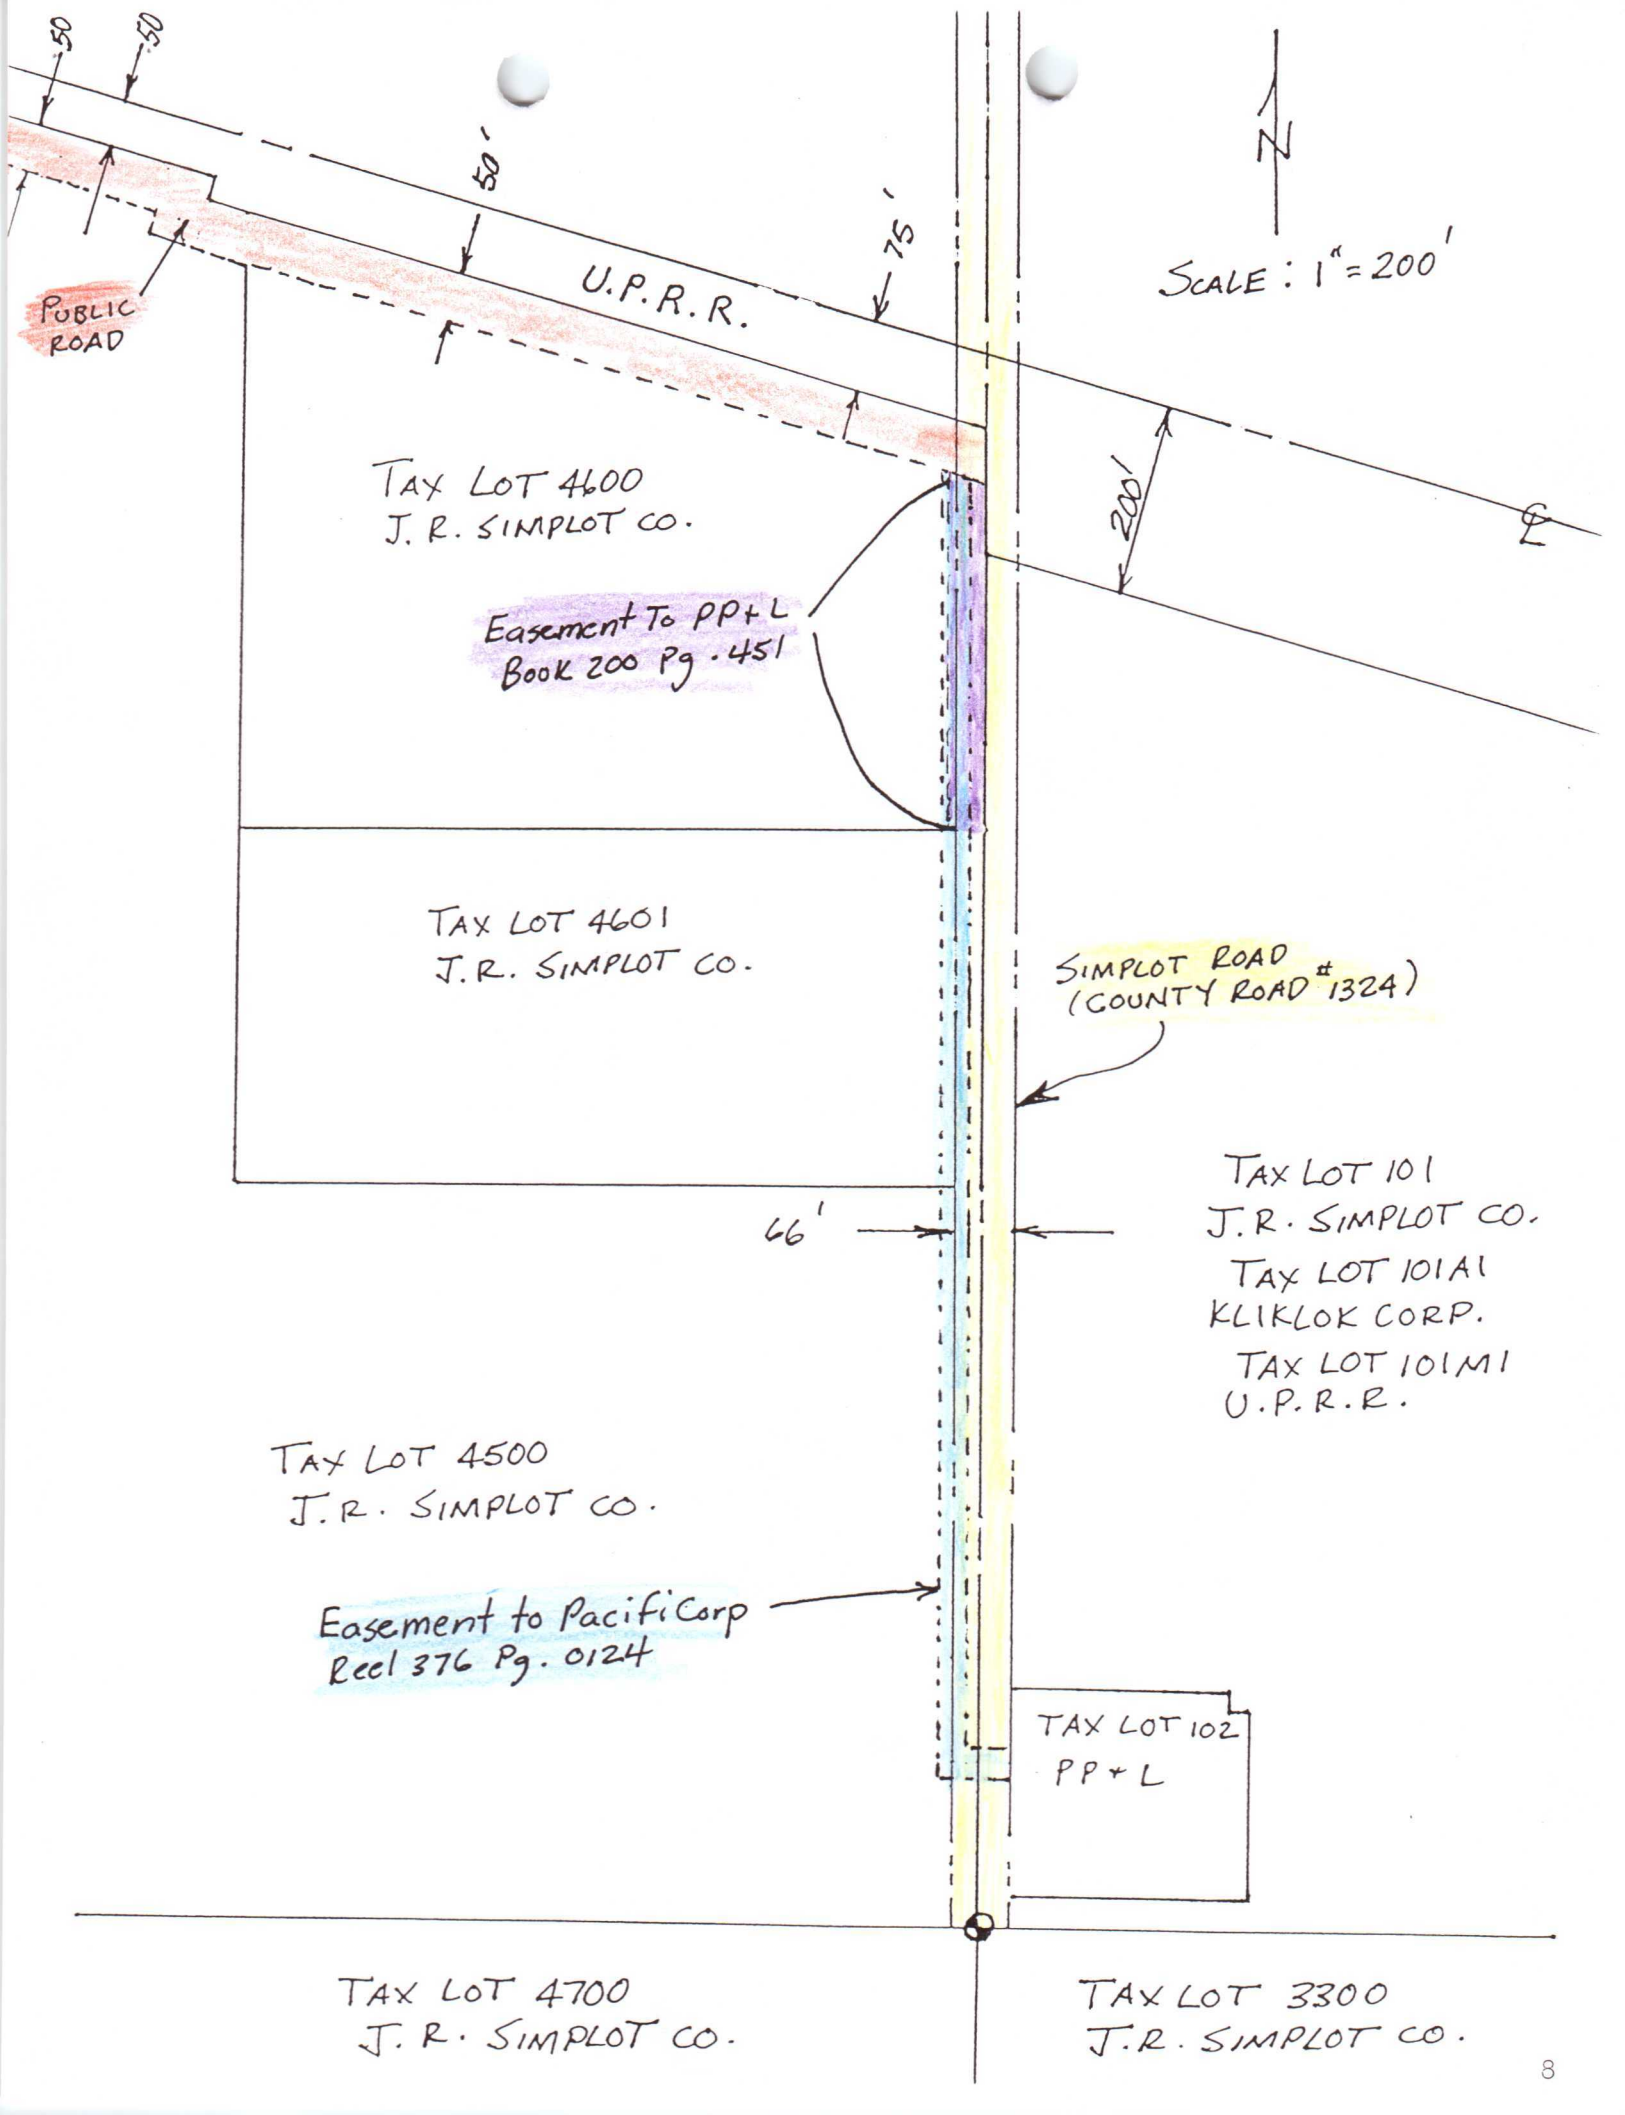 50
50
50'
75'
N
SCALE: 1"=200'
U.P.R.R.
PUBLIC
ROAD
TAX LOT 4600
J.R. SIMPLOT CO.
200'
℄
Easement To PP+L
Book 200 Pg. 451
TAX LOT 4601
J.R. SIMPLOT CO.
SIMPLOT ROAD
(COUNTY ROAD #1324)
66'
TAX LOT 101
J.R. SIMPLOT CO.
TAX LOT 101A1
KLIKLOK CORP.
TAX LOT 101M1
U.P.R.R.
TAX LOT 4500
J.R. SIMPLOT CO.
Easement to PacifiCorp
Reel 376 Pg. 0124
TAX LOT 102
PP+L
TAX LOT 4700
J.R. SIMPLOT CO.
TAX LOT 3300
J.R. SIMPLOT CO.
8